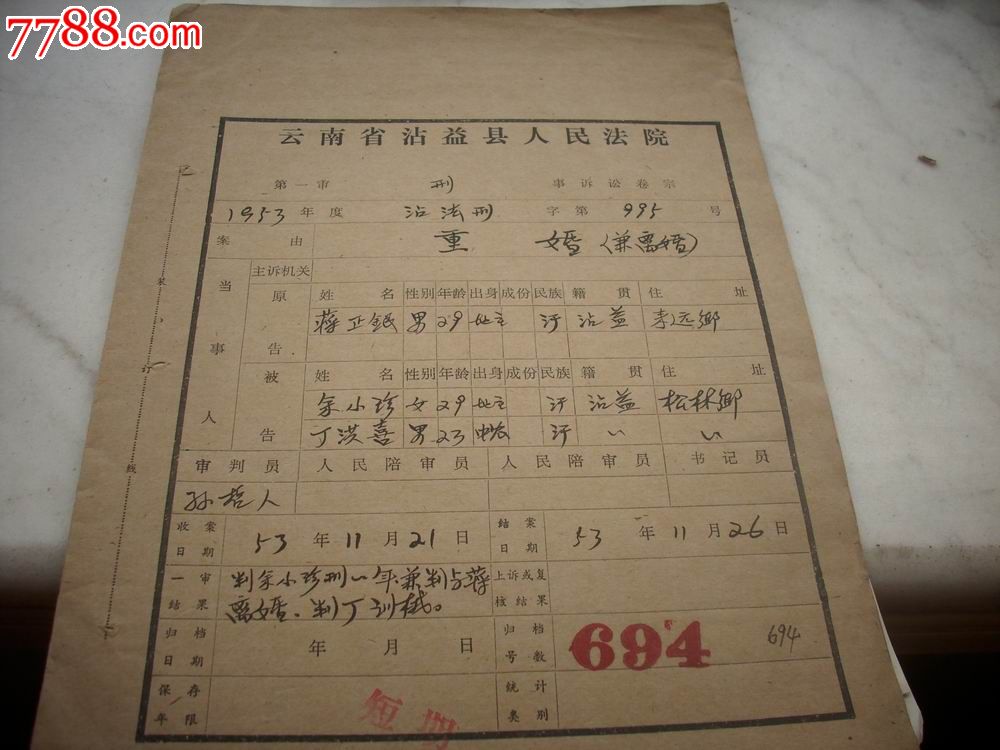 7788.com
云南省沾益县人民法院
第一审 刑 事诉讼卷宗
1953 年度 沾法刑 字第 995 号
案由 重婚(兼离婚)
当事人
主诉机关
原告 姓名 性别 年龄 出身 成份 民族 籍贯 住址
蒋正银 男 29 地主 汙 沾益 来远鄉
被告 姓名 性别 年龄 出身 成份 民族 籍贯 住址
余小珍 女 29 地主 汙 沾益 松林鄉
丁洪喜 男 23 中农 汙 〃 〃
审判员 人民陪审员 人民陪审员 书记员
孙哲人
收案日期 53 年 11 月 21 日 结案日期 53 年 11 月 26 日
一审结果 判余小珍刑一年兼判与蒋 上诉或复核结果
离婚、判丁训诫。
归档日期 年 月 日 归档号数 694 694
保存年限 短期 统计类别
装订线